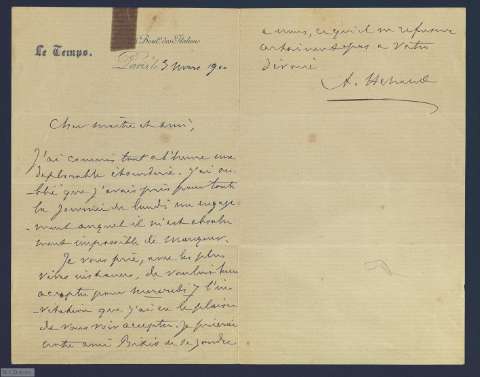 Le Temps.
Boul. des Italiens
Paris le 3 mars 190
Cher maître et ami,
J'ai commis tout à l'heure une
déplorable étourderie. J'ai ou-
blié que j'avais pris pour toute
la journée de lundi un engage-
ment auquel il m'est absolu-
ment impossible de manquer.
Je vous prie, avec les plus
vives instances, de vouloir bien
accepter pour mercredi 7 l'in-
vitation que j'ai eu le plaisir
de vous voir accepter. Je prierai
notre ami de se joindre
à nous, ce qu'il ne refusera
certainement pas à votre
dévoué
A. Hébrard